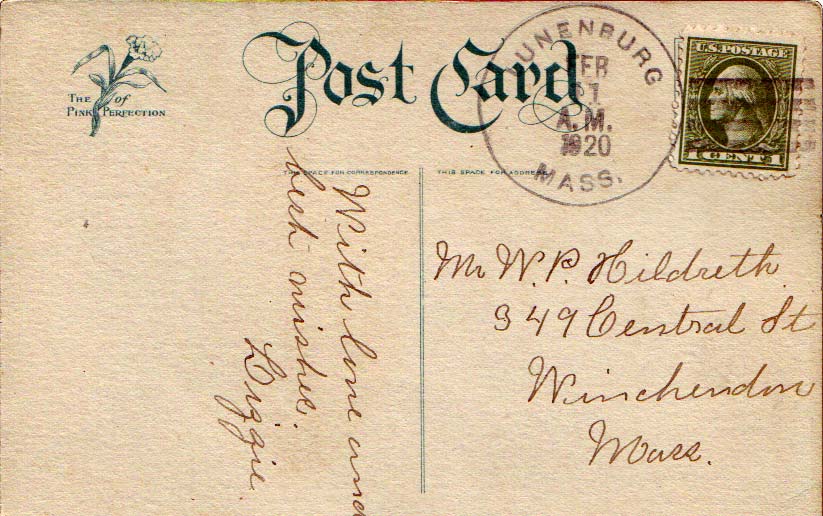 THE PINK of PERFECTION
Post Card
LUNENBURG
FEB
A.M.
1920
MASS.
U.S. POSTAGE
1 CENT 1
THIS SPACE FOR CORRESPONDENCE
THIS SPACE FOR ADDRESS
With love and
best wishes.
Lizzie.
Mr W. P. Hildreth
349 Central St
Winchendon
Mass.